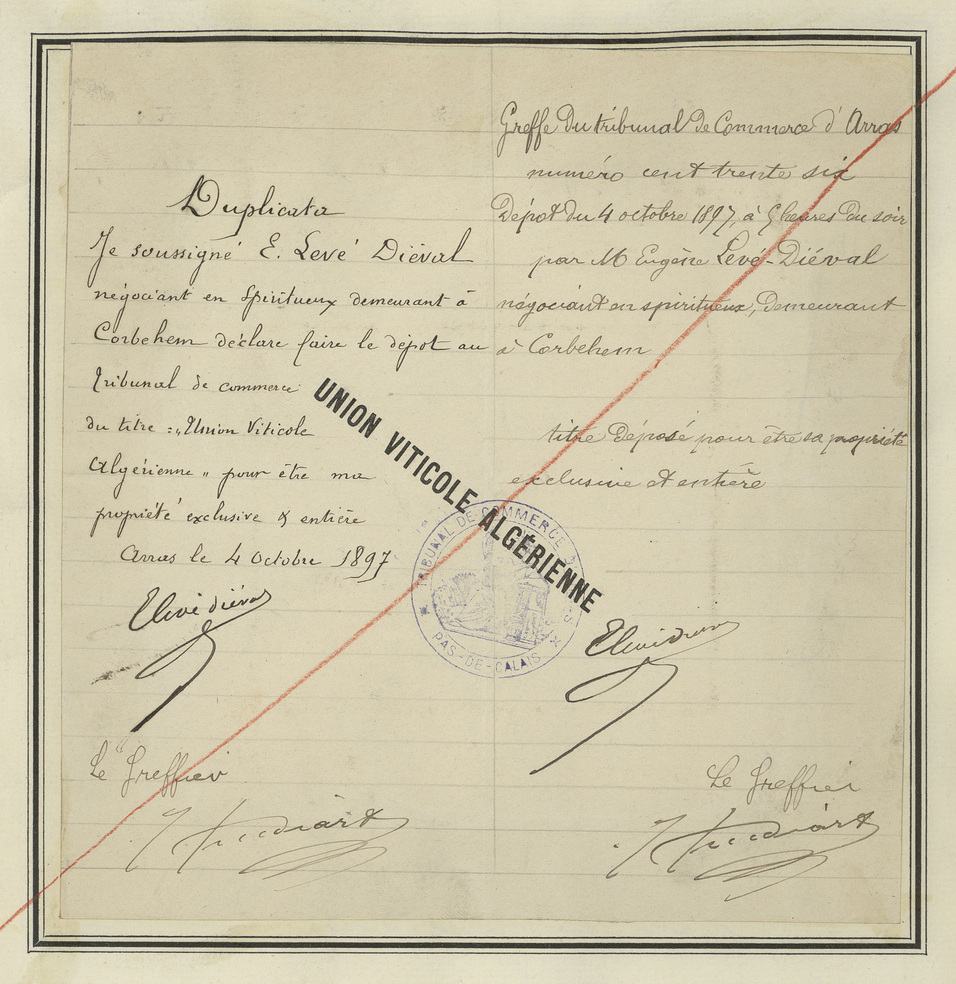 Duplicata
Je soussigné E. Levé Diéval
négociant en spiritueux demeurant à
Corbehem déclare faire le dépot au
tribunal de commerce
du titre : „Union Viticole
Algérienne „ pour être ma
propriété exclusive & entière
Arras le 4 Octobre 1897
Le Greffier
Greffe du tribunal de Commerce d'Arras
numéro cent trente six
Dépot du 4 octobre 1897, à heures du soir
par M Eugène Levé-Diéval
négociant en spiritueux, demeurant
à Corbehem
titre déposé pour être sa propriété
exclusive et entière
Le Greffier
UNION VITICOLE ALGÉRIENNE
TRIBUNAL DE COMMERCE
PAS-DE-CALAIS